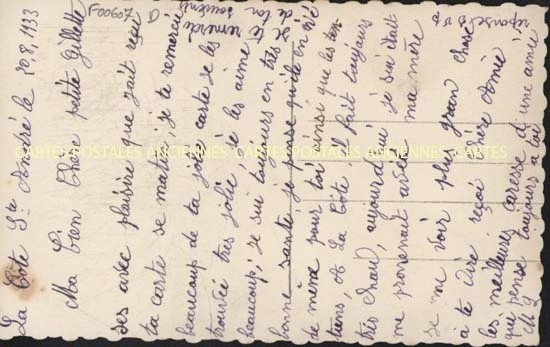 La Côte St André le 20,8,1933
Ma bien Chère petite Gillette
ses avec plaisire que jait reçu
ta carte se matin, je te remercie
beaucoup de ta jolie carte je les
trouvée très jolie je les aime
beaucoup, je sui toujours en très
bonne santé je pense qu'ile en n'é
de même pour toi ainsi que les
tiens, A La Côte il fait toujours
très chaud, aujourd'hui je sui était
me promenait avec ma mère
je ne voir plus gran chose
à te dire reçoi chère Amie
les meilleures caresse d'une amie
qui pense toujours a toi
réponse s v p
je te remercie
de ton souvenir
F00607
CARTES POSTALES ANCIENNES
CARTES POSTALES ANCIENNES
CARTES